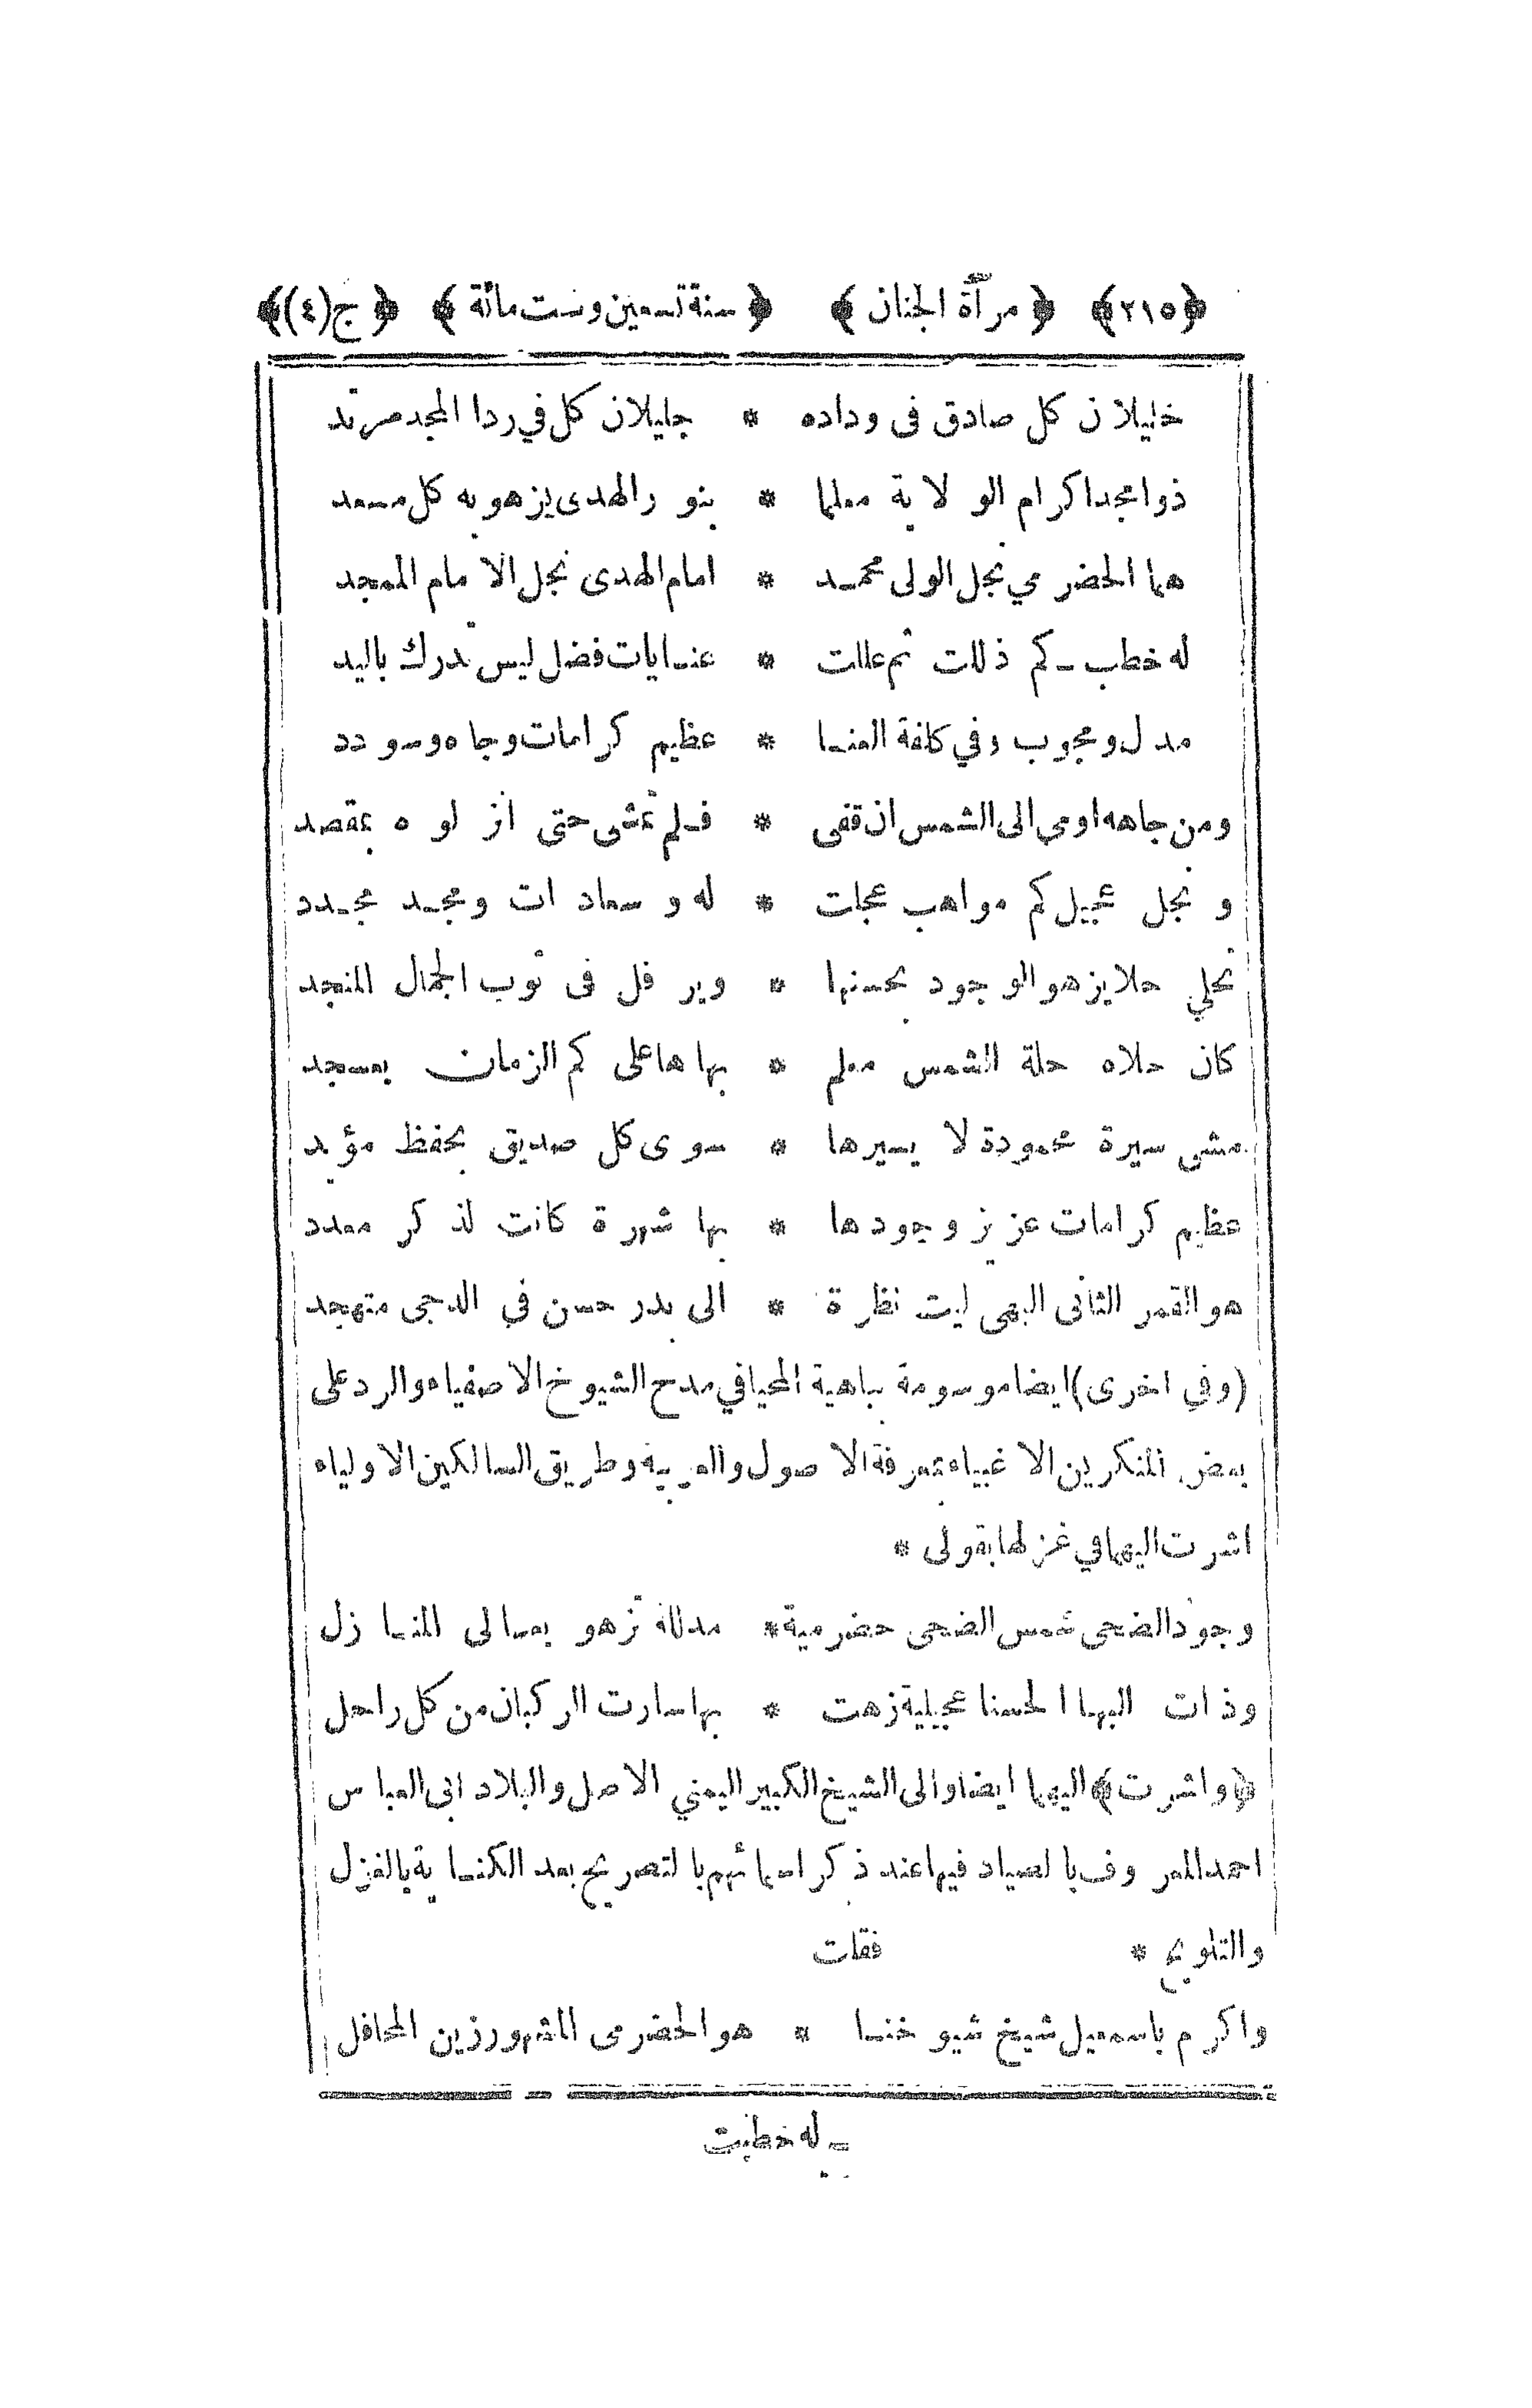 ﴿٢١٥﴾ ﴿مرآة الجنان﴾ ﴿سنة تسعين وست مائة﴾ ﴿ج(٤)﴾
خليلان كل صادق فى وداده * جليلان كل في ردا المجد مرتد
ذوا مجدا كرام الولاية معلما * بنور الهدى يزهو به كل مسعد
هما الحضرمي نجل الولى محمد * امام الهدى نجل الامام الممجد
له خطب كم ذللت ثم عللت * عنايات فضل ليس تدرك باليد
مدل ومحبوب وفي كلفة العنا * عظيم كرامات وجاه وسودد
ومن جاهه اومي الى الشمس ان قفى * فلم تمشى حتى انزلوه بمقصد
ونجل عجيل كم مواهب عجلت * له وسعادات ومجد مجدد
تحلي حلا يزهو الوجود بحسنها * ويرفل فى ثوب الجمال المنجد
كان حلاه حلة الشمس معلم * بهاها على كم الزمان بعسجد
مشى سيرة محمودة لا يسيرها * سوى كل صديق بحفظ مؤيد
عظيم كرامات عزيز وجودها * بها شهرة كانت لذكر معدد
هو القمر الثانى البهى ليت نظرة * الى بدر حسن في الدجى متهجد
(وفي اخرى) ايضا موسومة بباهية المحيا في مدح الشيوخ الاصفياء والرد على
بعض المنكرين الاغبياء بمعرفة الاصول والعربية وطريق السالكين الاولياء
اشرت اليهما في غزلها بقولى *
وجود الضحى شمس الضحى حضرمية * مدللة تزهو بعالى المنازل
وذات البها الحسنا عجيلية زهت * بها سارت الركبان من كل راحل
﴿واشرت﴾ اليهما ايضا والى الشيخ الكبير اليمني الاصل والبلاد ابى العباس
احمد المعروف بالصياد فيها عند ذكر اسمائهم بالتصريح بعد الكناية بالغزل
والتلويح * فقلت
واكرم باسمعيل شيخ شيوخنا * هو الحضرمى المشهور زين المحافل
له خطبت